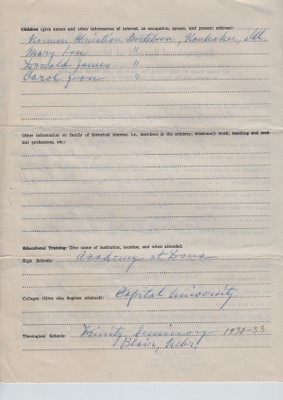 Children (give names and other information of interest, as occupation, spouse, and present address):
Norman Christian Bertelson, Kankakee, Ill.
Mary Lou "
Donald James "
Carol Joan "
Other information on family of historical interest, i.e., members in the ministry, missionary work, teaching and medical professions, etc.:
Educational Training: (Give name of institution, location, and when attended.
High Schools: Academy at Dana
Colleges (Give also degrees attained): Capital University
Theological Schools: Trinity Seminary 1930-33
Blair, Nebr.